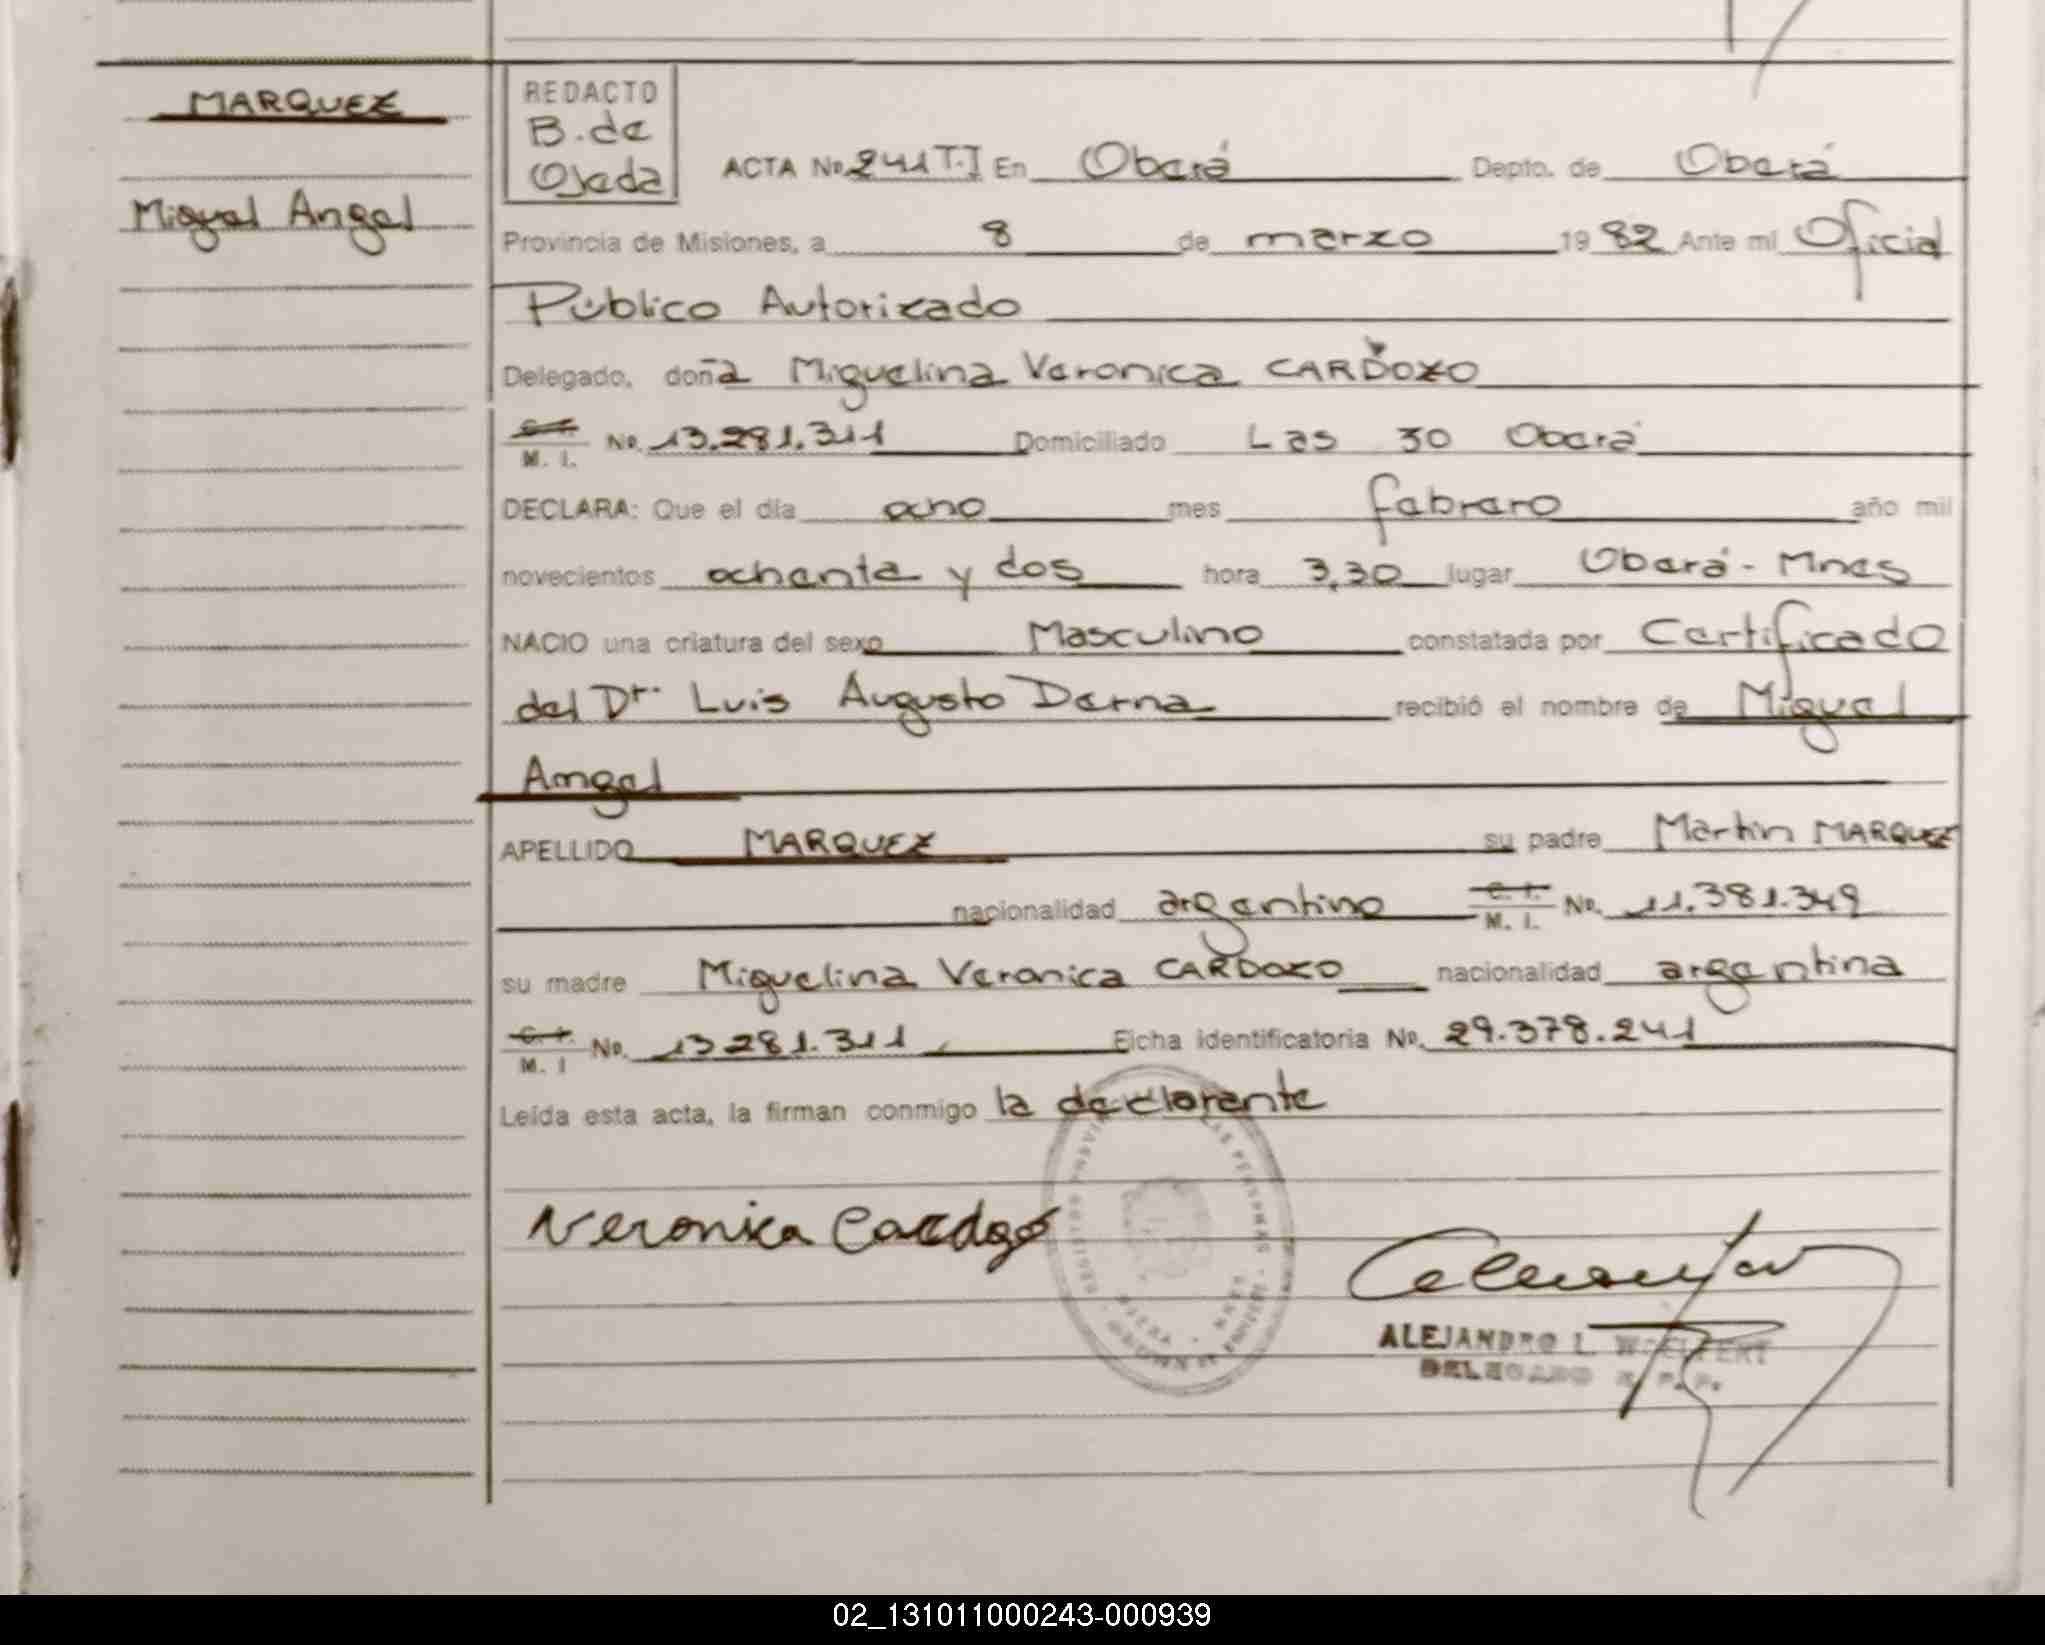 MARQUEZ
Miguel Angel
REDACTO
B. de
Ojeda
ACTA No. 241 T.I En Oberá Depto. de Oberá
Provincia de Misiones, a 8 de marzo 19 82 Ante mi Oficial
Público Autorizado
Delegado, doña Miguelina Veronica CARDOZO
C. I. / M. I. No. 13.281.311 Domiciliado Las 30 Oberá
DECLARA: Que el dia ocho mes febrero año mil
novecientos ochenta y dos hora 3,30 lugar Oberá - Mnes
NACIO una criatura del sexo Masculino constatada por Certificado
del Dr. Luis Augusto Derna recibió el nombre de Miguel
Angel
APELLIDO MARQUEZ su padre Martin MARQUEZ
nacionalidad argentino C. I. / M. I. No. 11.381.349
su madre Miguelina Veronica CARDOZO nacionalidad argentina
C. I. / M. I No. 13281.311 Ficha identificatoria No. 29.378.241
Leída esta acta, la firman conmigo la declarante
Veronica Cardozo
ALEJANDRO L. WOELFERT
DELEGADO R. P. P.
02_131011000243-000939